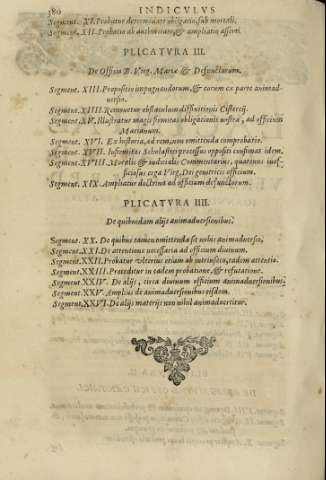 380 INDICVLVS
Segment. XI. Probatur
Segment. XII. Probatio ab authoritate, & ampliatio asserti.
PLICATVRA III.
De Officio B. Virg. Mariæ & Defunctorum.
Segment. XIII. Propositio impugnandorum, & eorum ex parte animad-
uersio.
Segment. XIIII. Remouetur obstaculum Cistercij.
Segment. XV. Illustratur magis firmitas obligationis nostræ, ad officium
Marianum.
Segment. XVI. Ex historia, ad rem, non omittenda comprobatio.
Segment. XVII. Scholastici processus oppositi confirmat idem.
Segment. XVIII. Moralis & iudicialis Commentarius, quatenus inof-
ficiosus erga Virg. Dei genetricis officium.
Segment. XIX. Ampliatur doctrina ad officium defunctorum.
PLICATVRA IIII.
De quibusdam alijs animaduersionibus.
Segment. XX. De quibus tamen omittenda sit nobis animaduersio.
Segment. XXI. De attentione necessaria ad officium diuinum.
Segment. XXII. Probatur vlterius etiam ab intrinseco, eadem attentio.
Segment. XXIII. Proceditur in eadem probatione, & refutatione.
Segment. XXIV. De alijs, circa diuinum officium animaduersionibus.
Segment. XXV. Amplius de animaduersionibus eisdem.
Segment. XXVI. De alijs materijs non nihil animaduertitur.